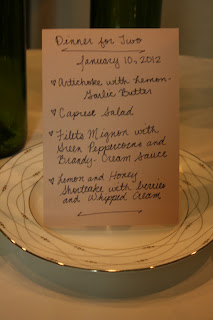 Dinner for Two
January 10, 2012
♡ Artichoke with Lemon-
Garlic Butter
♡ Caprese Salad
♡ Filets Mignon with
Green Peppercorns and
Brandy-Cream Sauce
♡ Lemon and Honey
Shortcake with berries
and Whipped Cream